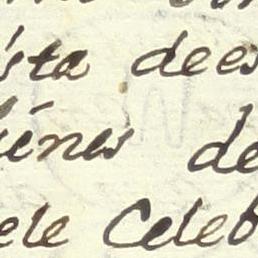 ista dees
iénes de
ele Celeb